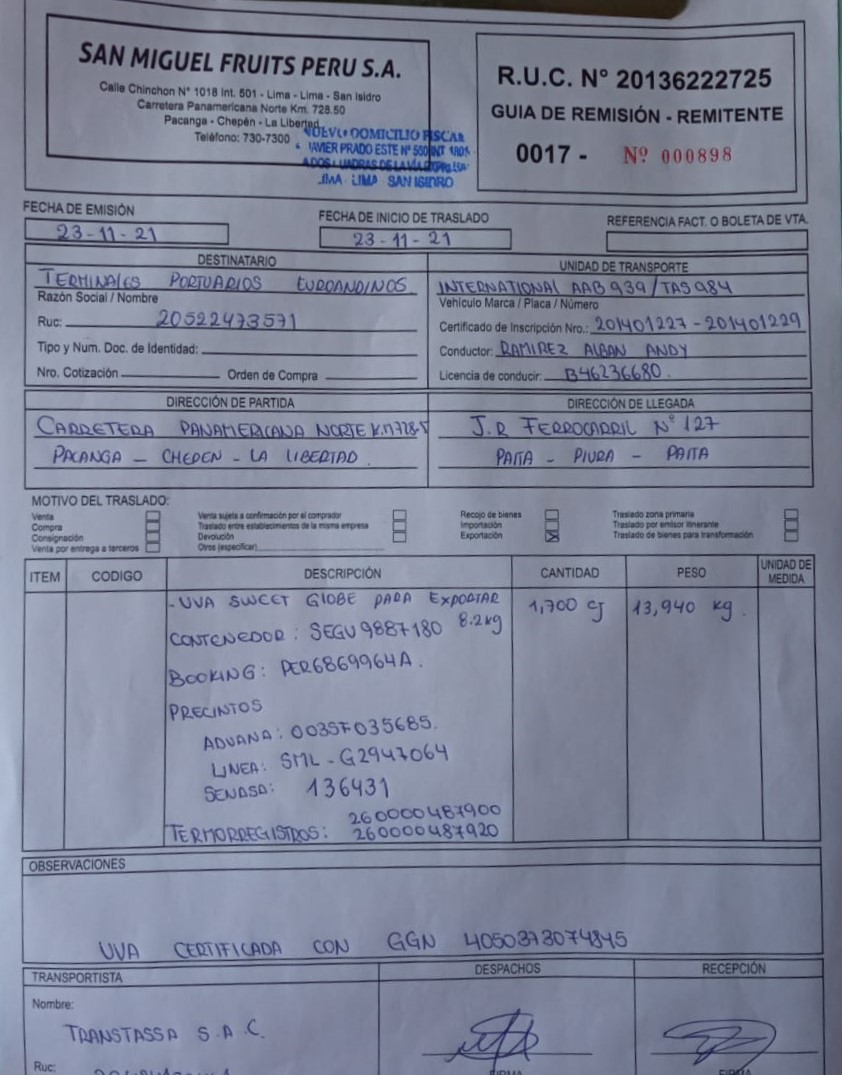 SAN MIGUEL FRUITS PERU S.A.
Calle Chinchon N° 1018 Int. 501 - Lima - Lima - San Isidro
Carretera Panamericana Norte Km. 728.50
Pacanga - Chepén - La Libertad
Teléfono: 730-7300
NUEVO DOMICILIO FISCAL
JAVIER PRADO ESTE N° 560 INT
LIMA - LIMA SAN ISIDRO
R.U.C. N° 20136222725
GUIA DE REMISIÓN - REMITENTE
0017 - Nº 000898
FECHA DE EMISIÓN
23-11-21
FECHA DE INICIO DE TRASLADO
23-11-21
REFERENCIA FACT. O BOLETA DE VTA.
DESTINATARIO
TERMINALES PORTUARIOS EUROANDINOS
Razón Social / Nombre
Ruc: 20522473571
Tipo y Num. Doc. de Identidad:
Nro. Cotización Orden de Compra
UNIDAD DE TRANSPORTE
INTERNATIONAL AAB939/TAS984
Vehículo Marca / Placa / Número
Certificado de Inscripción Nro.: 201401227-201401229
Conductor: RAMIREZ ALBAN ANDY
Licencia de conducir: B46236680.
DIRECCIÓN DE PARTIDA
CARRETERA PANAMERICANA NORTE K.M728-5
PACANGA - CHEPEN - LA LIBERTAD.
DIRECCIÓN DE LLEGADA
J.R FERROCARRIL N° 127
PAITA - PIURA - PAITA
MOTIVO DEL TRASLADO:
Venta
Compra
Consignación
Venta por entrega a terceros
Venta sujeta a confirmación por el comprador
Traslado entre establecimientos de la misma empresa
Devolución
Otros (especificar)
Recojo de bienes
Importación
Exportación X
Traslado zona primaria
Traslado por emisor itinerante
Traslado de bienes para transformación
ITEM CODIGO DESCRIPCIÓN CANTIDAD PESO UNIDAD DE MEDIDA
- UVA SWEET GLOBE PARA EXPORTAR 1,700 cj 13,940 kg.
8.2kg
CONTENEDOR: SEGU9887180
BOOKING: PER6869964A.
PRECINTOS
ADUANA: 0035F035685.
LINEA: SML-G2947064
SENASA: 136431
TERMORREGISTROS: 260000487900
260000487920
OBSERVACIONES
UVA CERTIFICADA CON GGN 4050373074845
TRANSPORTISTA
Nombre:
TRANSTASSA S.A.C.
Ruc:
DESPACHOS
FIRMA
RECEPCIÓN
FIRMA